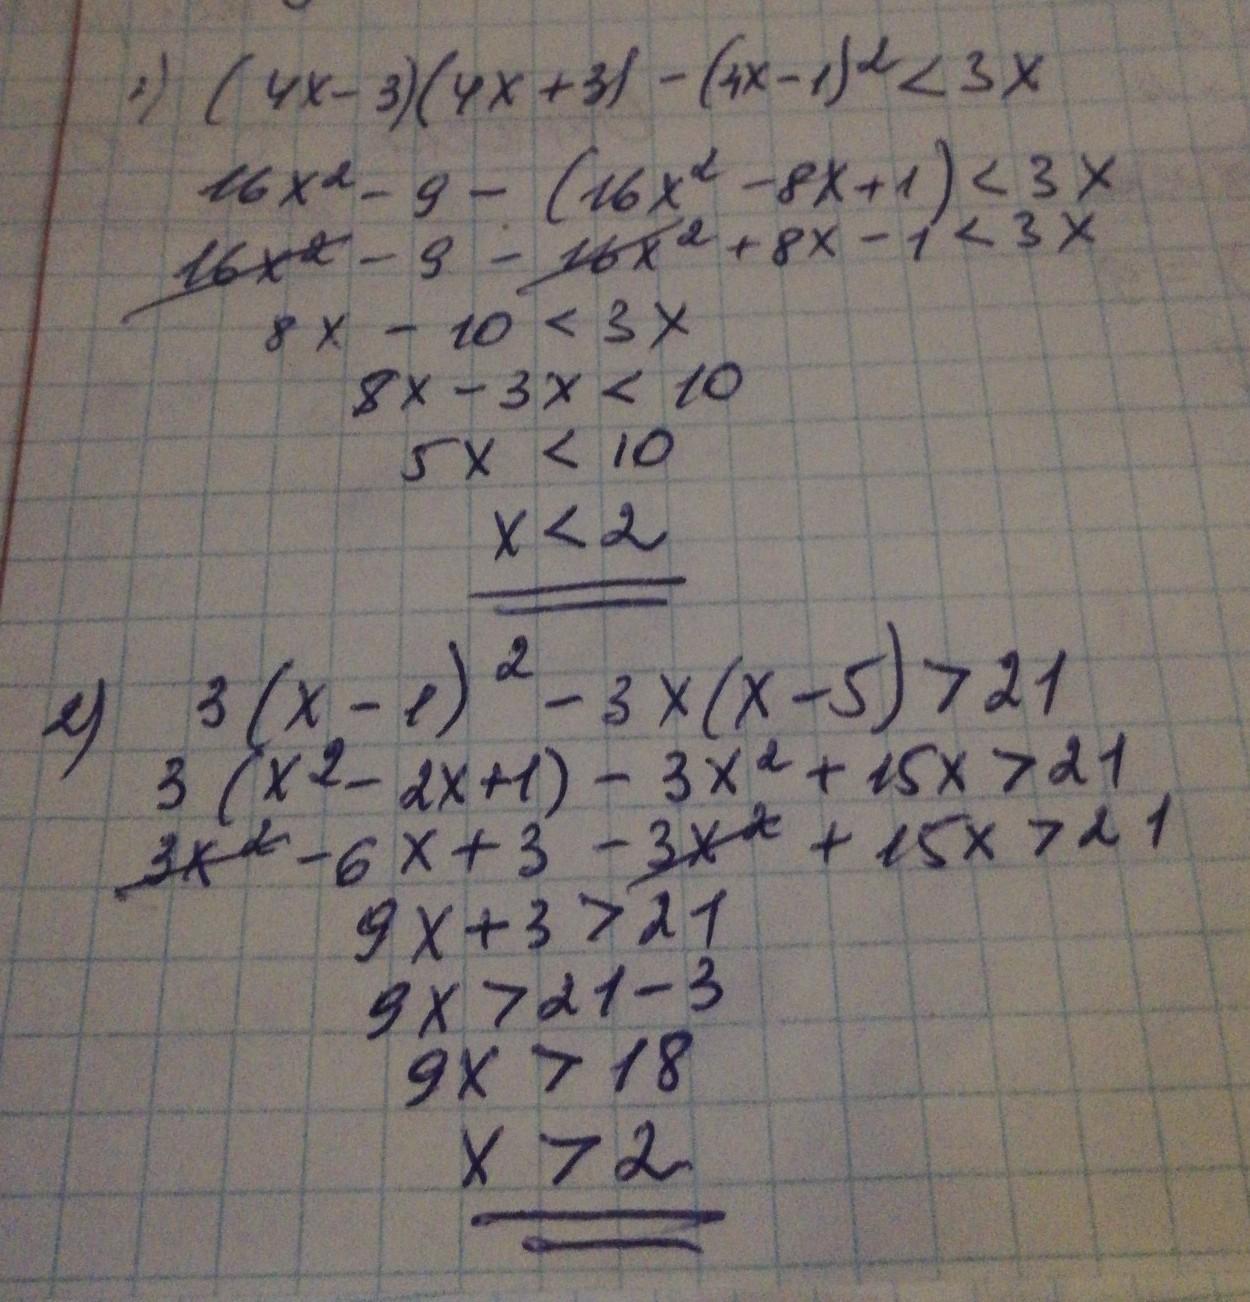 1) (4x-3)(4x+3)-(4x-1)²<3x
16x²-9-(16x²-8x+1)<3x
16x²-9-16x²+8x-1<3x
8x-10<3x
8x-3x<10
5x<10
x<2
2) 3(x-1)²-3x(x-5)>21
3(x²-2x+1)-3x²+15x>21
3x²-6x+3-3x²+15x>21
9x+3>21
9x>21-3
9x>18
x>2